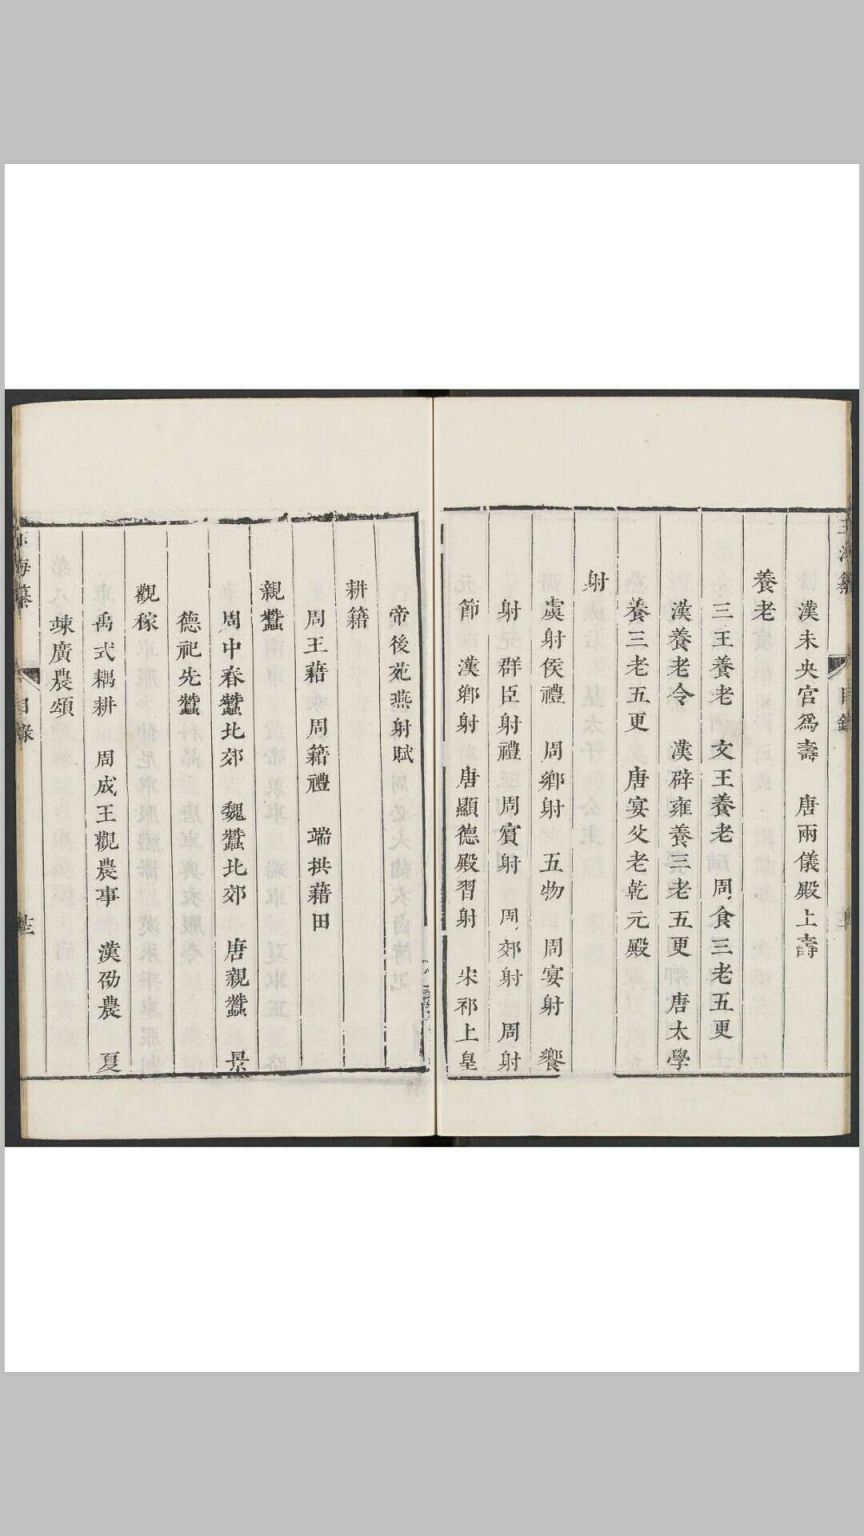 漢未央宮爲壽　唐兩儀殿上壽
養老
三王養老　文王養老　周食三老五更
漢養老令　漢辟雍養三老五更　唐太學
養三老五更　唐宴父老乾元殿
射
虞射侯禮　周鄉射　五物　周宴射　饗
射　群臣射禮　周賓射　周郊射　周射
節　漢鄉射　唐顯德殿習射　宋祁上皇
帝後苑燕射賦
耕籍
周王藉　周籍禮　端拱藉田
親蠶
周中春蠶北郊　魏蠶北郊　唐親蠶　景
德祀先蠶
觀稼
禹式耦耕　周成王觀農事　漢勸農　夏
竦廣農頌
海纂
目錄